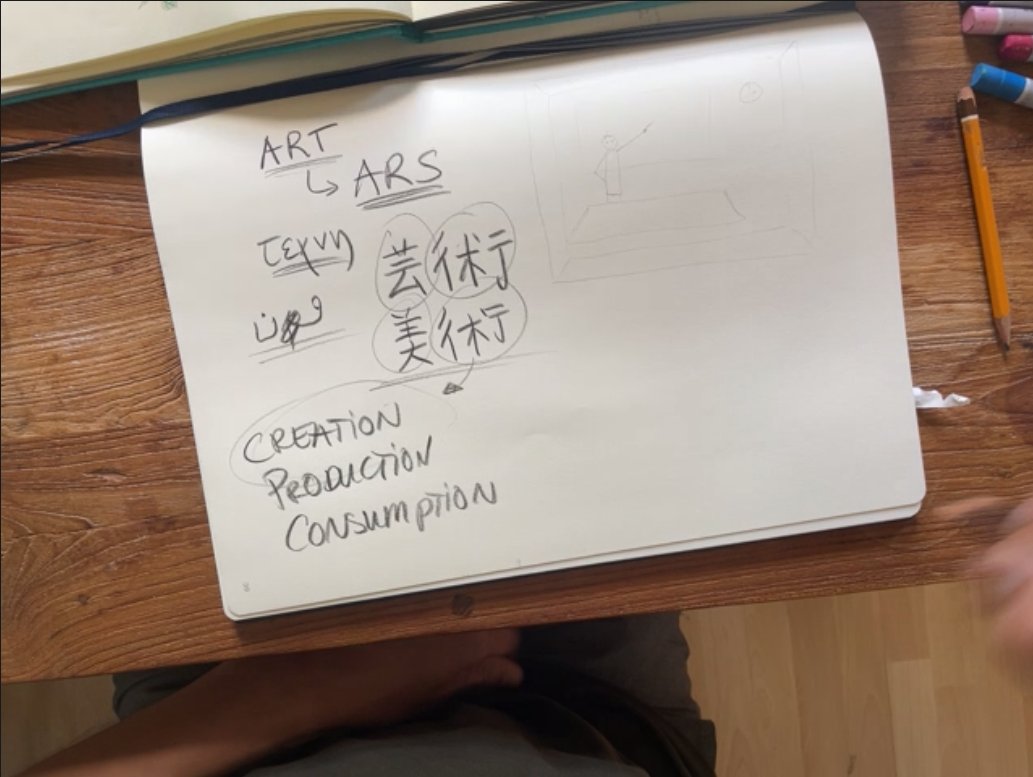 ART
ARS
τεχνη
芸術
美術
CREATION
PRODUCTION
CONSUMPTION
8